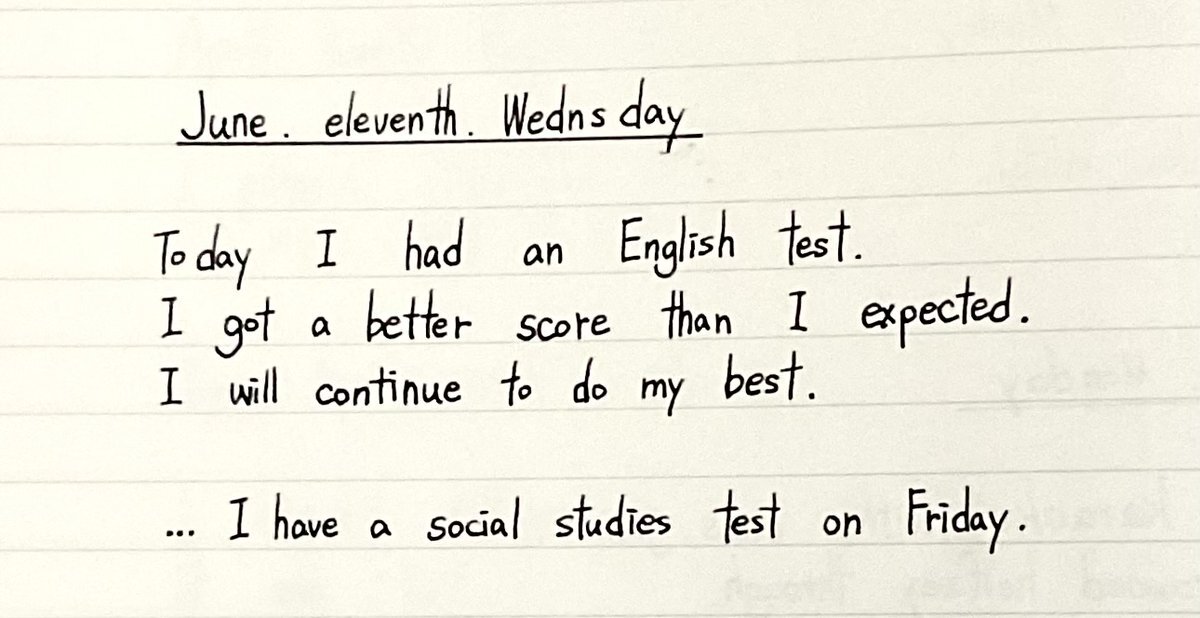 June. eleventh. Wednsday
Today I had an English test.
I got a better score than I expected.
I will continue to do my best.
... I have a social studies test on Friday.